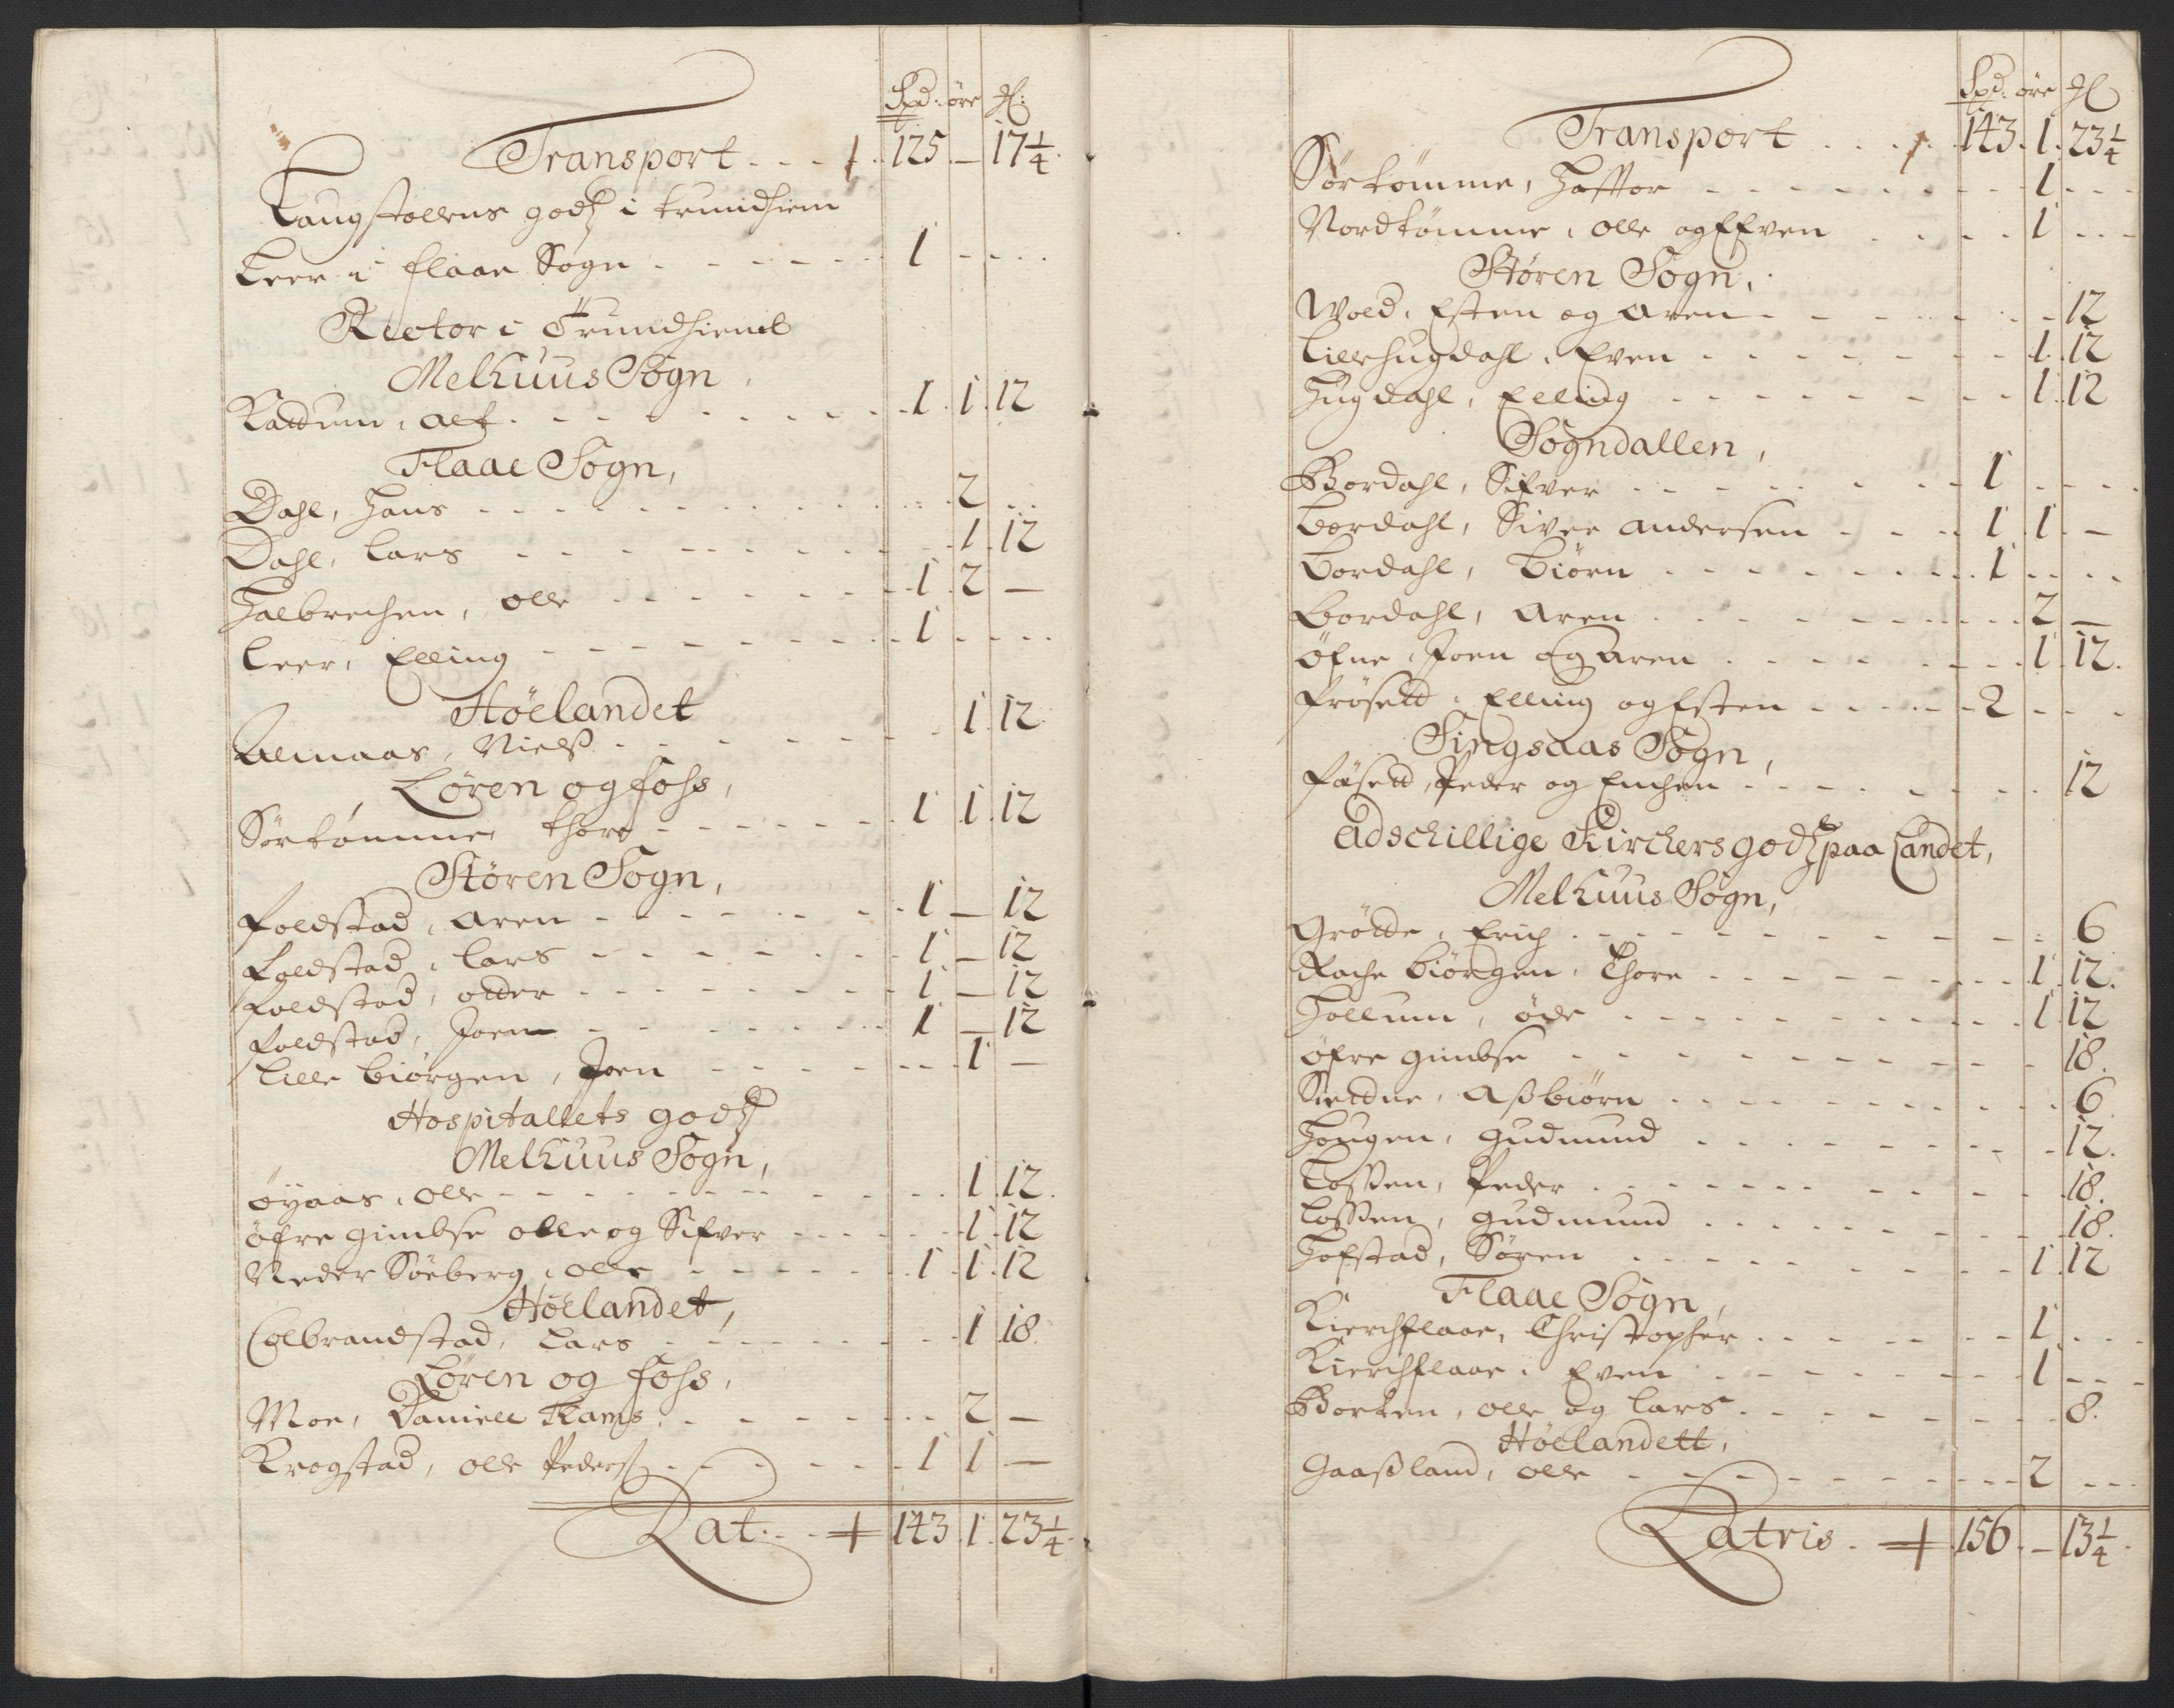 Spd: öre
Transport 125 — 17 1/4
Laugstolens godtz i trundhiem
Leer i flaae Sogn 1
Rector i Trundhiemb
Melhuus Sogn,
Kattum, alf 1 1 12
Flaae Sogn,
Dahl, Hans 2
Dahl, lars 1 12
Halbrechen, olle 1 2 —
Leer, Elling 1
Höelandet
Almaas, Nielß 1 12
Lören og fohs,
Sörtömme, thore 1 1 12
Stören Sogn,
foldstad, aren 1 — 12
foldstad, lars 1 — 12
foldstad, otter 1 — 12
foldstad, Joen 1 — 12
lille biörgen, Joen 1 —
Hospitallets godtz
Melhuus Sogn,
öyaas, olle 1 12
öfre gimbse olle og Sifver 1 12
Neder Söeberg, olle 1 1 12
Höelandet,
Colbrandstad, lars 1 18
Lören og fohs,
Moe, Daniell Kams 2 —
Krogstad, olle Pederß 1 1 —
Lat. 143 1 23 1/4
Spd. öre
Transport 143 1 23 1/4
Sörtömme, Haftor 1
Nordtömme, olle og Efven 1
Stören Sogn,
Wold, Esten og aren 12
Lillehugdahl, Even 1 12
Hugdahl, Elling 1 12
Sogndallen,
Bordahl, Sifver 1
Bordahl, Siver andersen 1 1 —
Bordahl, Biörn 1
Bordahl, aren 2 —
öfne, Joen og aren 1 12
frösett, Elling og Esten 2
Singsaas Sogn,
fösett, Peder og Enchen 12
adschillige Kirchers godtz paa Landet,
Melhuus Sogn,
Grötte, Erich 6
Rache biörgen, Thore 1 12
Hollum, öde 1 12
öfre gimbse 18
Sletne, aßbiörn 6
Hougen, gudmund 12
Losßen, Peder 18
Losßen, gudmund 18
Hofstad, Sören 1 12
Flaae Sogn,
Kierchflaae, Christopher 1
Kierchflaae, Even 1
Borten, olle og lars 8
Höelandett,
Gaaßland, olle 2
Latris 156 — 13 1/4